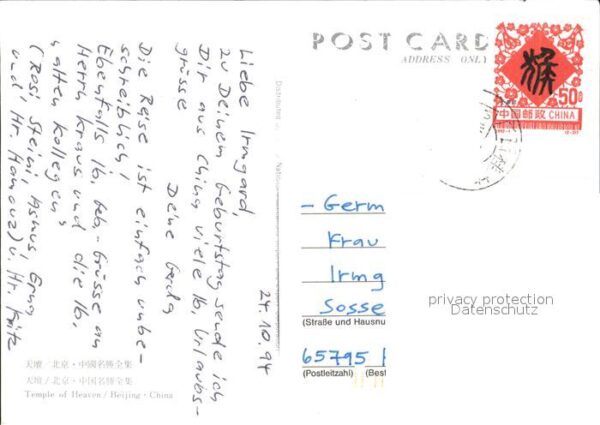 POST CARD
ADDRESS ONLY
猴
50分
中国邮政 CHINA
24.10.94
Liebe Irmgard,
zu Deinem Geburtstag sende ich
Dir aus China viele lb. Urlaubs-
grüsse
Deine Gerda
Die Reise ist einfach unbe-
schreiblich!
Ebenfalls lb. Geb.-Grüsse an
Herrn Kraus und die lb.
"alten Kollegen"
(Rosi Steini, Asmus, Erna
und Hr. Hamouz) u. Hr. Fritz
- Germ
Frau
Irmg
Sosse
(Straße und Hausnu
65795 H
(Postleitzahl) (Best
privacy protection
Datenschutz
天壇/北京·中國名勝全集
天坛/北京·中国名胜全集
Temple of Heaven/Beijing·China